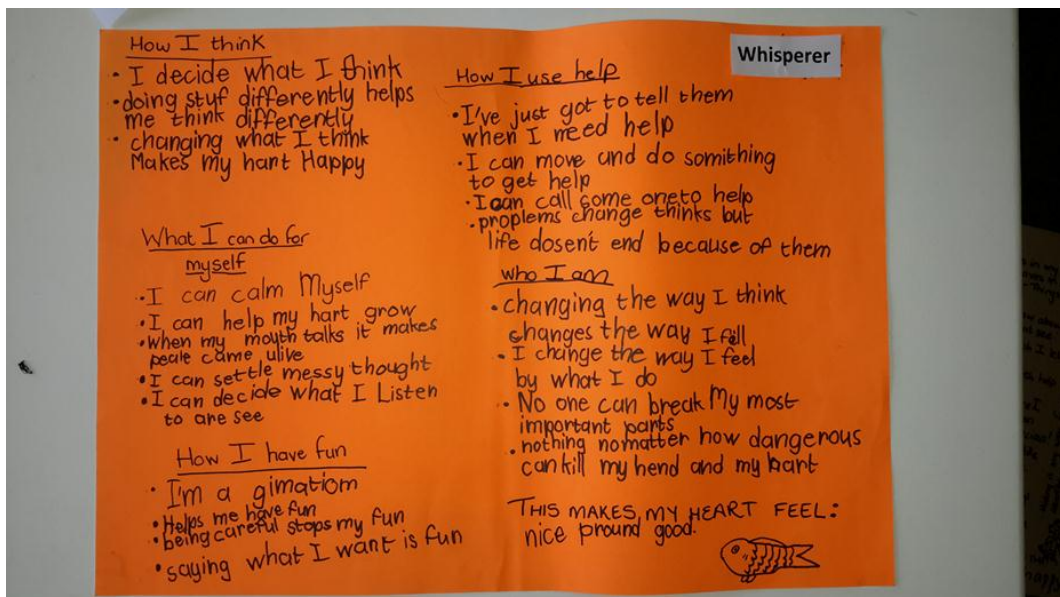 How I think
• I decide what I think
• doing stuf differently helps
me think differently
• changing what I think
Makes my hart Happy
What I can do for
myself
• I can calm Myself
• I can help my hart grow
• when my mouth talks it makes
peale came ulive
• I can settle messy thought
• I can decide what I Listen
to are see
How I have fun
• I'm a gimatiom
• Helps me have fun
• being careful stops my fun
• saying what I want is fun
Whisperer
How I use help
• I've just got to tell them
when I need help
• I can move and do somithing
to get help
• I can call some one to help
• proplems change thinks but
life dosen't end because of them
who I am
• changing the way I think
changes the way I fell
• I change the way I feel
by what I do
• No one can break My most
important parts
• nothing no matter how dangerous
can kill my hend and my hart
THIS MAKES MY HEART FEEL:
nice pround good.